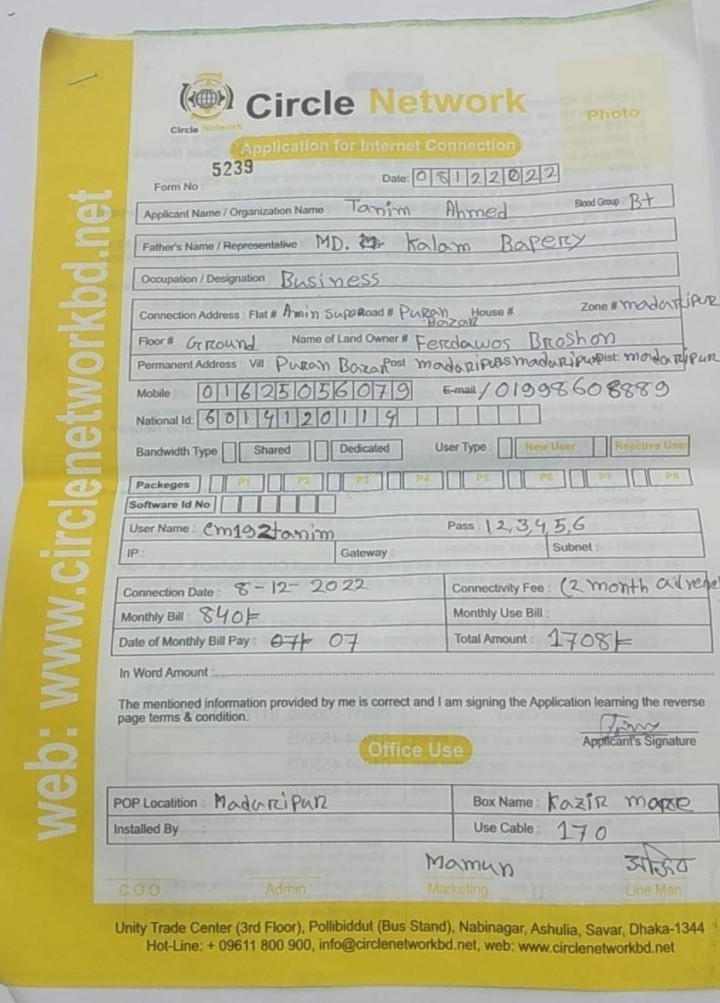 Circle Network
Circle Network
Photo
Application for Internet Connection
Form No 5239
Date: 08122022
Applicant Name / Organization Name Tanim Ahmed Blood Group B+
Father's Name / Representative MD. Kalam Bapery
Occupation / Designation Business
Connection Address : Flat # Amin Supo Road # Puran Bazar House # Zone # madaripur
Floor # Ground Name of Land Owner # Ferdawos Broshon
Permanent Address Vill Puran Bazar Post madaripur PS madaripur Dist: madaripur
Mobile : 01625056079 E-mail / 01998608889
National Id: 6014120114
Bandwidth Type Shared Dedicated User Type : New User Reactive User
Packeges P1 P2 P3 P4 P5 P6 P7 P8
Software Id No
User Name : cm192tanim Pass : 1,2,3,4,5,6
IP : Gateway : Subnet :
Connection Date : 8-12-2022 Connectivity Fee : (2 month
Monthly Bill : 840/= Monthly Use Bill :
Date of Monthly Bill Pay : 07 Total Amount : 1708/=
In Word Amount :
The mentioned information provided by me is correct and I am signing the Application learning the reverse
page terms & condition.
Applicant's Signature
Office Use
POP Locatition : Madaripur Box Name : Kazir
Installed By : Use Cable : 170
Mamun
C O O Admin Marketing Line Man
Unity Trade Center (3rd Floor), Pollibiddut (Bus Stand), Nabinagar, Ashulia, Savar, Dhaka-1344
Hot-Line: + 09611 800 900, info@circlenetworkbd.net, web: www.circlenetworkbd.net
web: www.circlenetworkbd.net